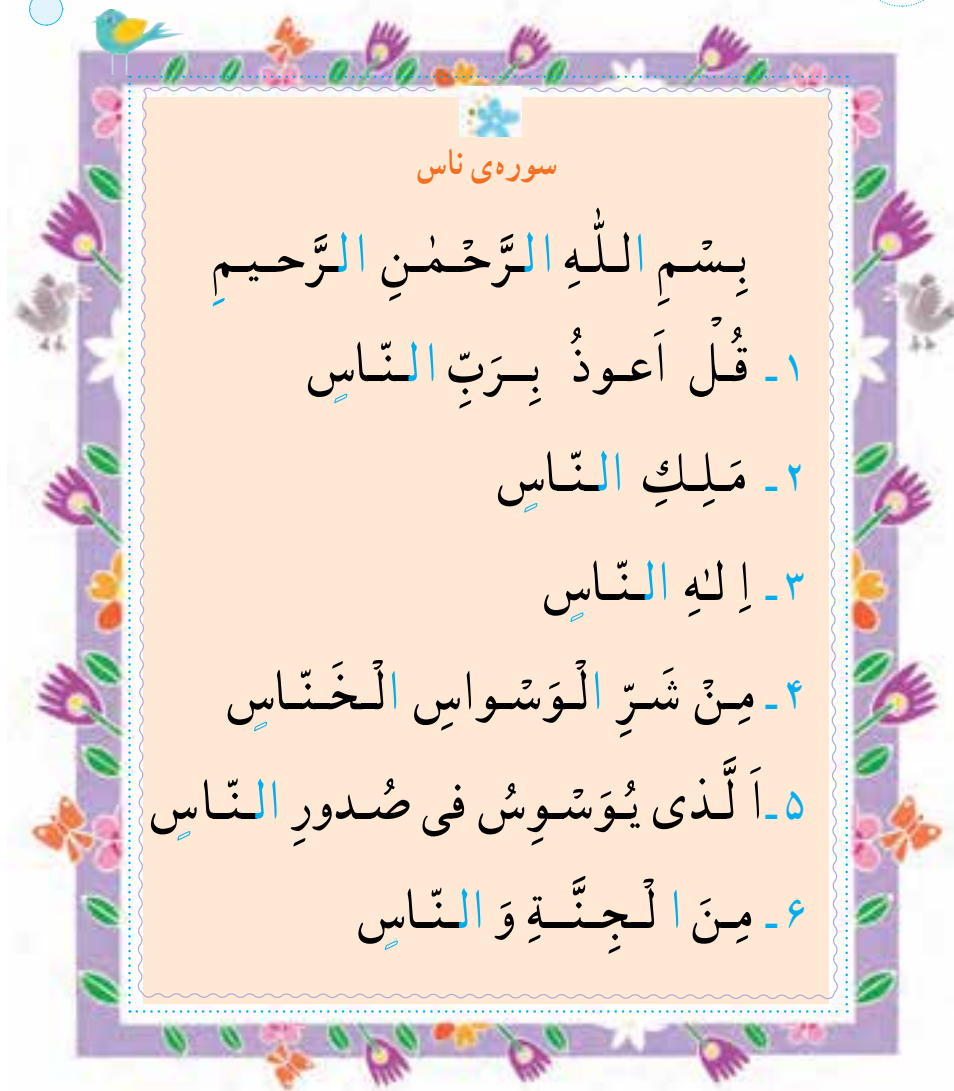 سوره‌ی ناس
بِسْمِ اللّٰهِ الرَّحْمٰنِ الرَّحیمِ
۱ـ قُلْ اَعوذُ بِرَبِّ النّاسِ
۲ـ مَلِكِ النّاسِ
۳ـ اِلٰهِ النّاسِ
۴ـ مِنْ شَرِّ الْوَسْواسِ الْخَنّاسِ
۵ـ اَلَّذی یُوَسْوِسُ فی صُدورِ النّاسِ
۶ـ مِنَ الْجِنَّةِ وَ النّاسِ